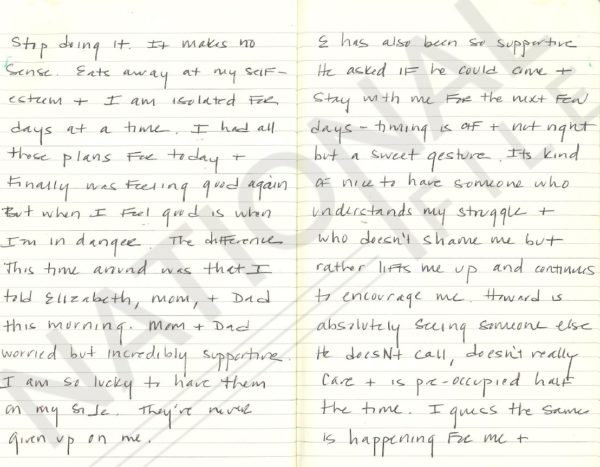 Stop doing it. It makes no
sense. Eats away at my self-
esteem + I am isolated for
days at a time. I had all
those plans for today +
finally was feeling good again
But when I feel good is when
I'm in danger. The difference
This time around was that I
told Elizabeth, mom, + Dad
this morning. Mom + Dad
worried but incredibly supportive.
I am so lucky to have them
on my side. They're never
given up on me.
E has also been so supportive
He asked if he could come +
stay with me for the next few
days - timing is off + not right
but a sweet gesture. Its kind
of nice to have someone who
understands my struggle +
who doesn't shame me but
rather lifts me up and continues
to encourage me. Howard is
absolutely seeing someone else
He doesn't call, doesn't really
care + is pre-occupied half
the time. I guess the same
is happening for me +
NATIONAL
FILE